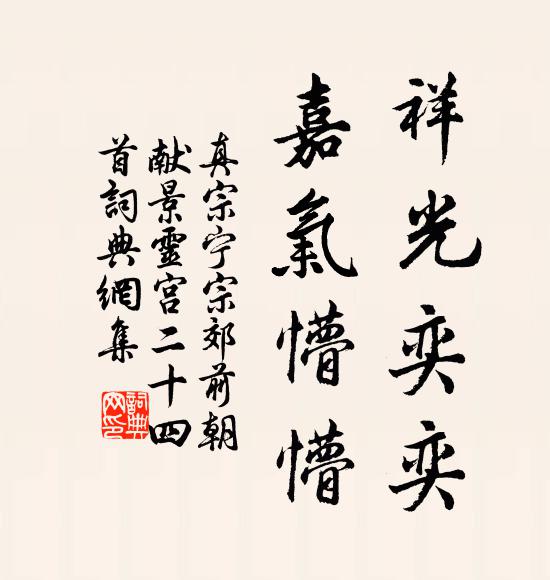 祥光奕奕
嘉氣懵懵
真宗宁宗郊前朝
献景靈宮二十四
首詞典網集
詞典網印